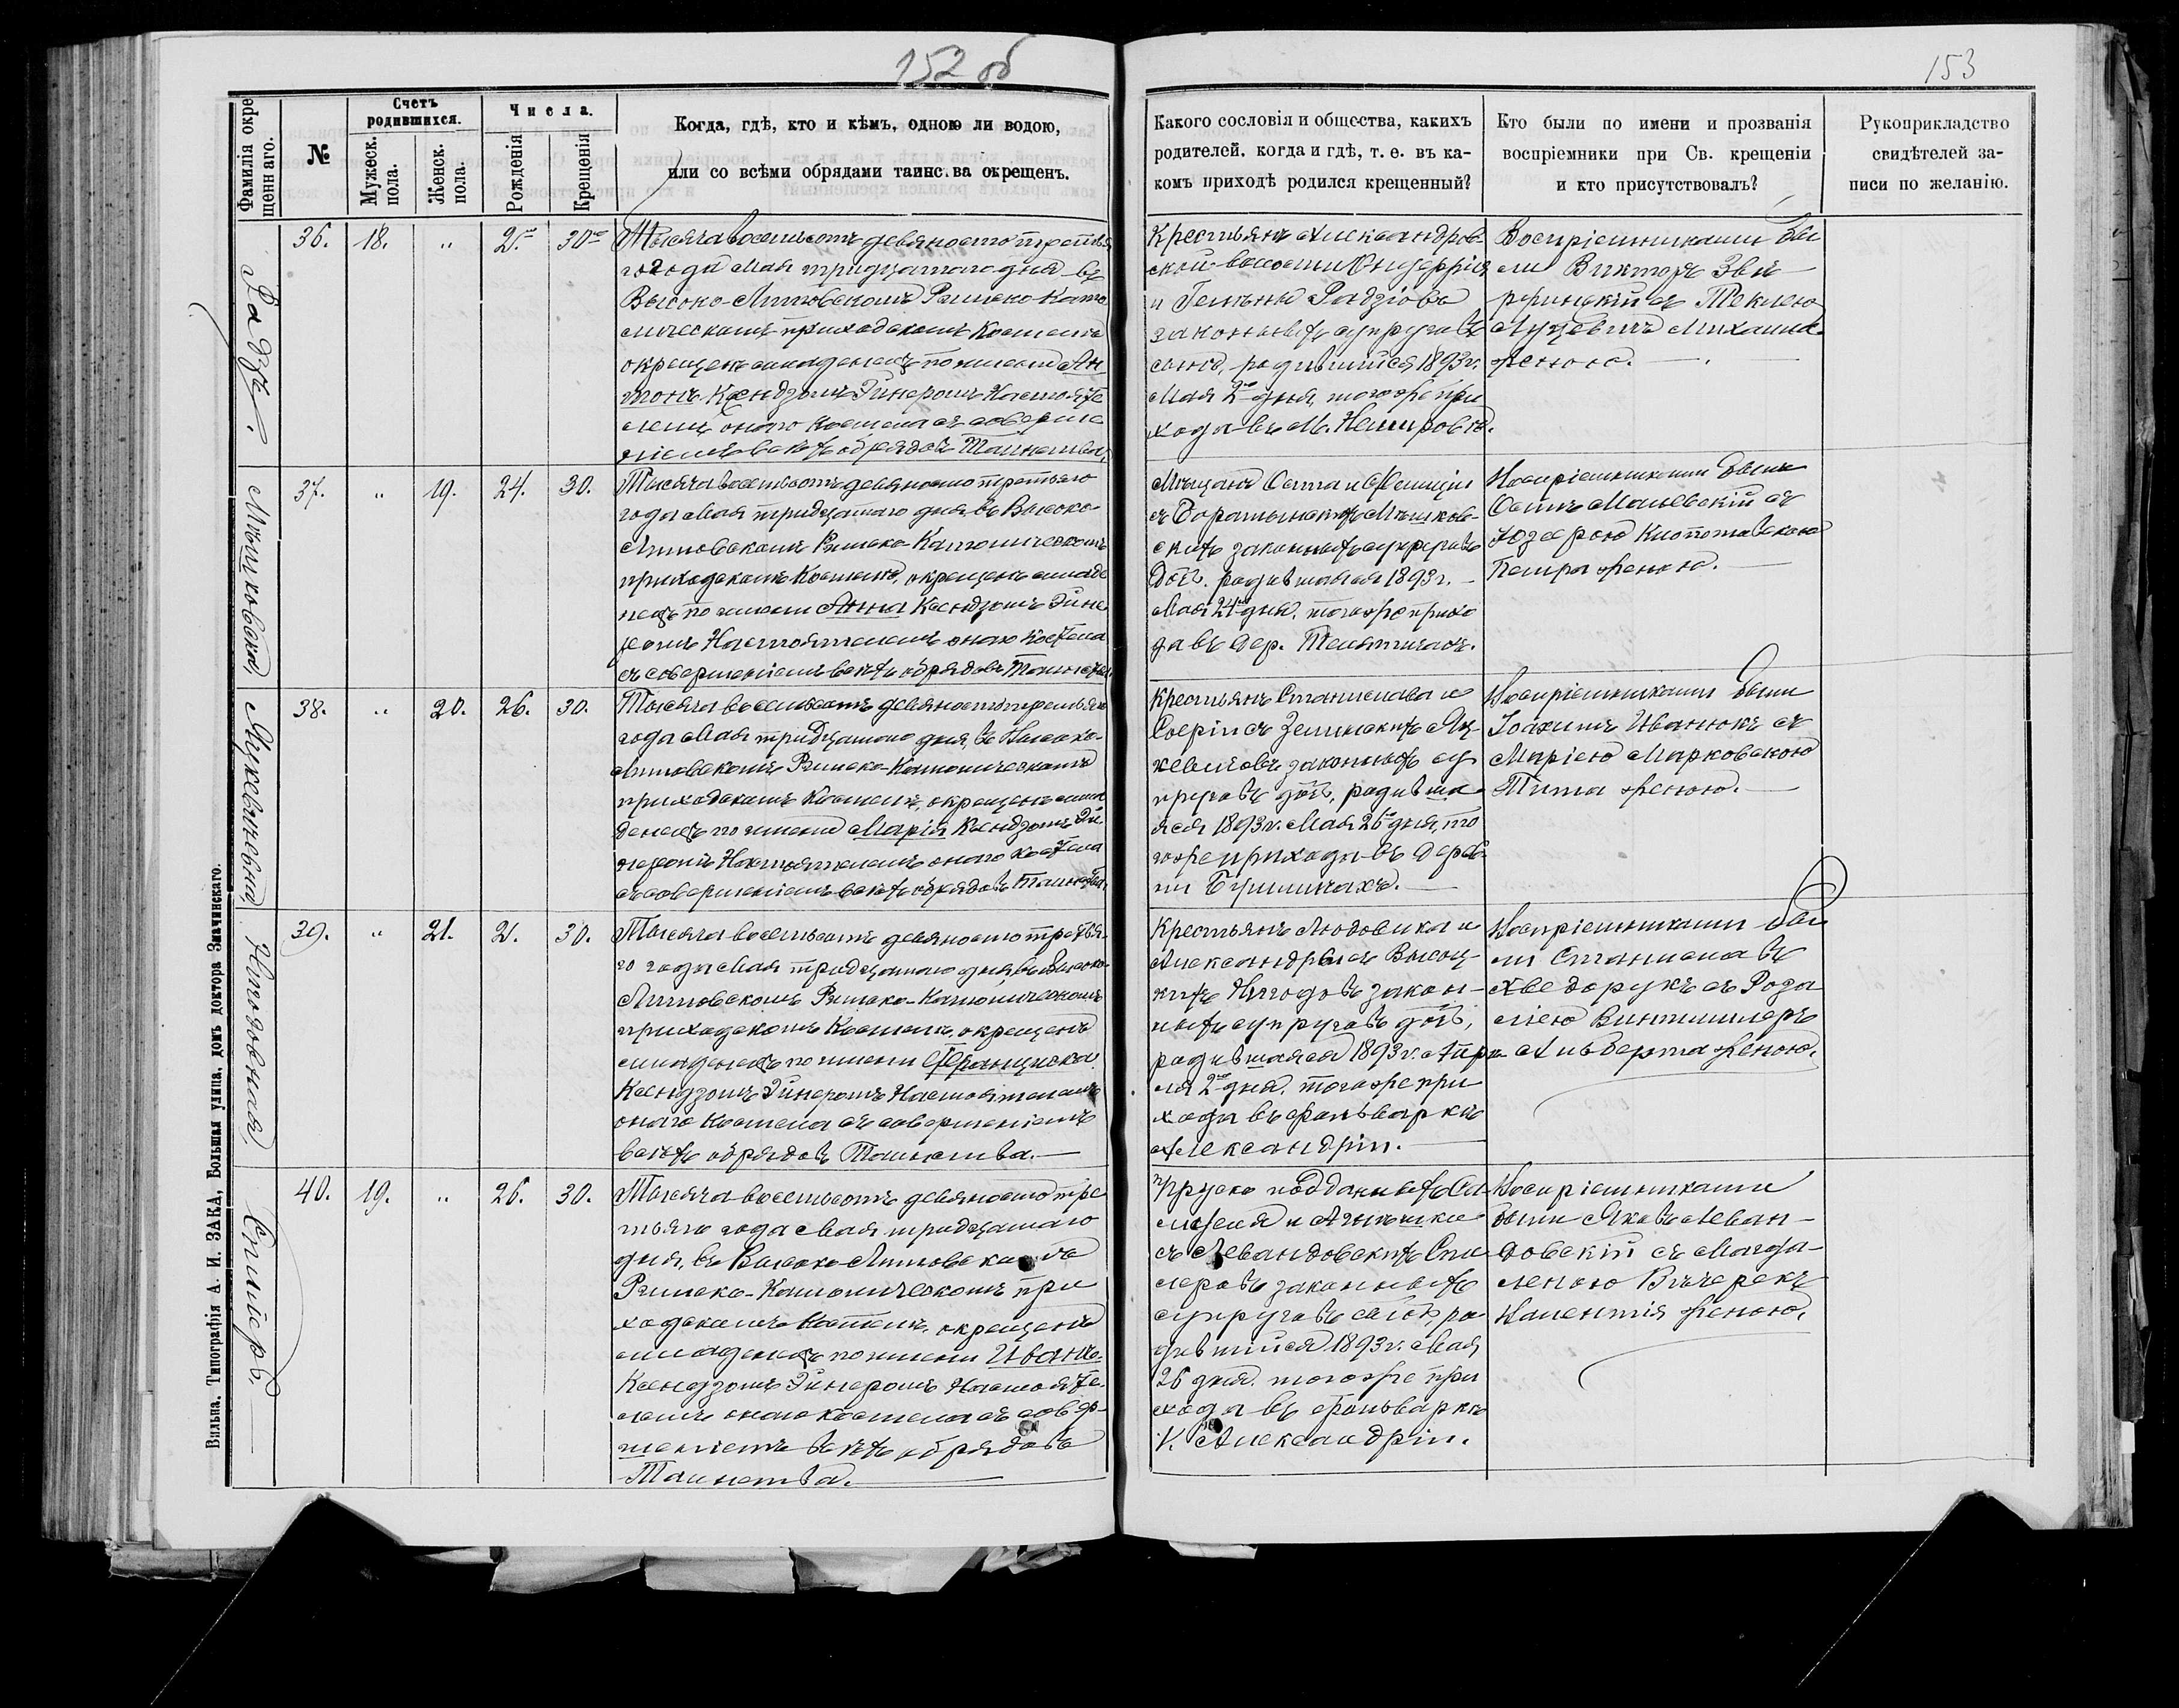 152 об
153
Фамилія окре
щеннаго.
№
Счетъ
родившихся.
Мужеск.
пола.
Женск.
пола.
Числа.
Рожденія
Крещенія
Когда, гдѣ, кто и кѣмъ, одною ли водою,
или со всѣми обрядами таинства окрещенъ.
Какого сословія и общества, какихъ
родителей, когда и гдѣ, т. е. въ ка-
комъ приходѣ родился крещенный?
Кто были по имени и прозванія
воспріемники при Св. крещеніи
и кто присутствовалъ?
Рукоприкладство
свидѣтелей за-
писи по желанію.
36. 18. „ 2го 30го
Тысяча восемьсотъ девяносто третья
го года Мая тридцатаго дня въ
Высоко-Литовскомъ Римско-Като
лическомъ приходскомъ Костелѣ
окрещенъ младенецъ по имени Ан
тонъ Ксендзомъ Эйнеромъ Настояте
лемъ оного Костела съ соверше
ніемъ всѣхъ обрядовъ Таинства.
Крестьянъ Александров-
ской волости
и Радзіовъ
законныхъ супруговъ
сынъ, родившійся 1893 г.
Мая 2го дня, того же при
хода въ М. Немировѣ.
Воспріемниками бы
ли Викторъ
съ Теклею
Михаила
женою.
Мѣшковская
37. „ 19. 24. 30.
Тысяча восемьсотъ девяносто третьяго
года Мая тридцатаго дня въ Высоко-
Литовскомъ Римско-Католическомъ
приходскомъ Костелѣ, окрещенъ младе
нецъ по имени Анна Ксендзомъ Эйне
ромъ Настоятелемъ оного Костела
съ совершеніемъ всѣхъ обрядовъ Таинства.
Мѣщанъ Осипа и Фелиціи
съ Мѣшков-
скихъ законныхъ супруговъ
дочь, родившаяся 1893 г.
Мая 24го дня, того же прихо
да въ дер. Телятичахъ.
Воспріемниками были
Осипъ Малевскій съ
Юзефою
Петра женою.
Мукевичовна
38. „ 20. 26. 30.
Тысяча восемьсотъ девяносто третьяго
года Мая тридцатаго дня, въ Высоко-
Литовскомъ Римско-Католическомъ
приходскомъ Костелѣ, окрещенъ мла
денецъ по имени Марія Ксендзомъ Эй
неромъ Настоятелемъ оного Костела
съ совершеніемъ всѣхъ обрядовъ Таинства.
Крестьянъ Станислава и
Софіи съ Зелинскихъ
законныхъ су
пруговъ дочь, родивша
яся 1893 г. Мая 26го дня, то
го же прихода въ дерев-
ни
Воспріемниками были
Іоахимъ Иванюкъ съ
Маріею Марковскою
Тита женою.
39. „ 21. 2. 30.
Тысяча восемьсотъ девяносто третья-
го года Мая тридцатаго дня въ Высоко-
Литовскомъ Римско-Католическомъ
приходскомъ Костелѣ, окрещенъ
младенецъ по имени Францишка
Ксендзомъ Эйнеромъ Настоятелемъ
оного Костела съ совершеніемъ
всѣхъ обрядовъ Таинства.
Крестьянъ Людовика и
Александры съ Высоц-
кихъ закон-
ныхъ супруговъ дочь,
родившаяся 1893 г. Апрѣ-
ля 2го дня, того же при
хода въ фольваркѣ
Александріи.
Воспріемниками бы
ли Станиславъ
Хведорукъ съ Роза
ліею
Альберта женою.
40. 19. „ 26. 30.
Тысяча восемьсотъ девяносто тре
тьяго года Мая тридцатаго
дня, въ Высоко-Литовскомъ
Римско-Католическомъ при
ходскомъ Костелѣ, окрещенъ
младенецъ по имени Иванъ
Ксендзомъ Эйнеромъ Настояте
лемъ оного костела съ совер-
шеніемъ всѣхъ обрядовъ
Таинства.
Прусско подданныхъ
съ Левандовскихъ
законныхъ
супруговъ сынъ, ро
дившійся 1893 г. Мая
26 дня, того же при
хода въ фольваркѣ
Александріи.
Воспріемниками
были Яковъ Леван-
довскій съ Магда-
леною
женою.
Вильна. Типографія А. И. ЗАКА, Большая улица, домъ доктора Значинскаго.